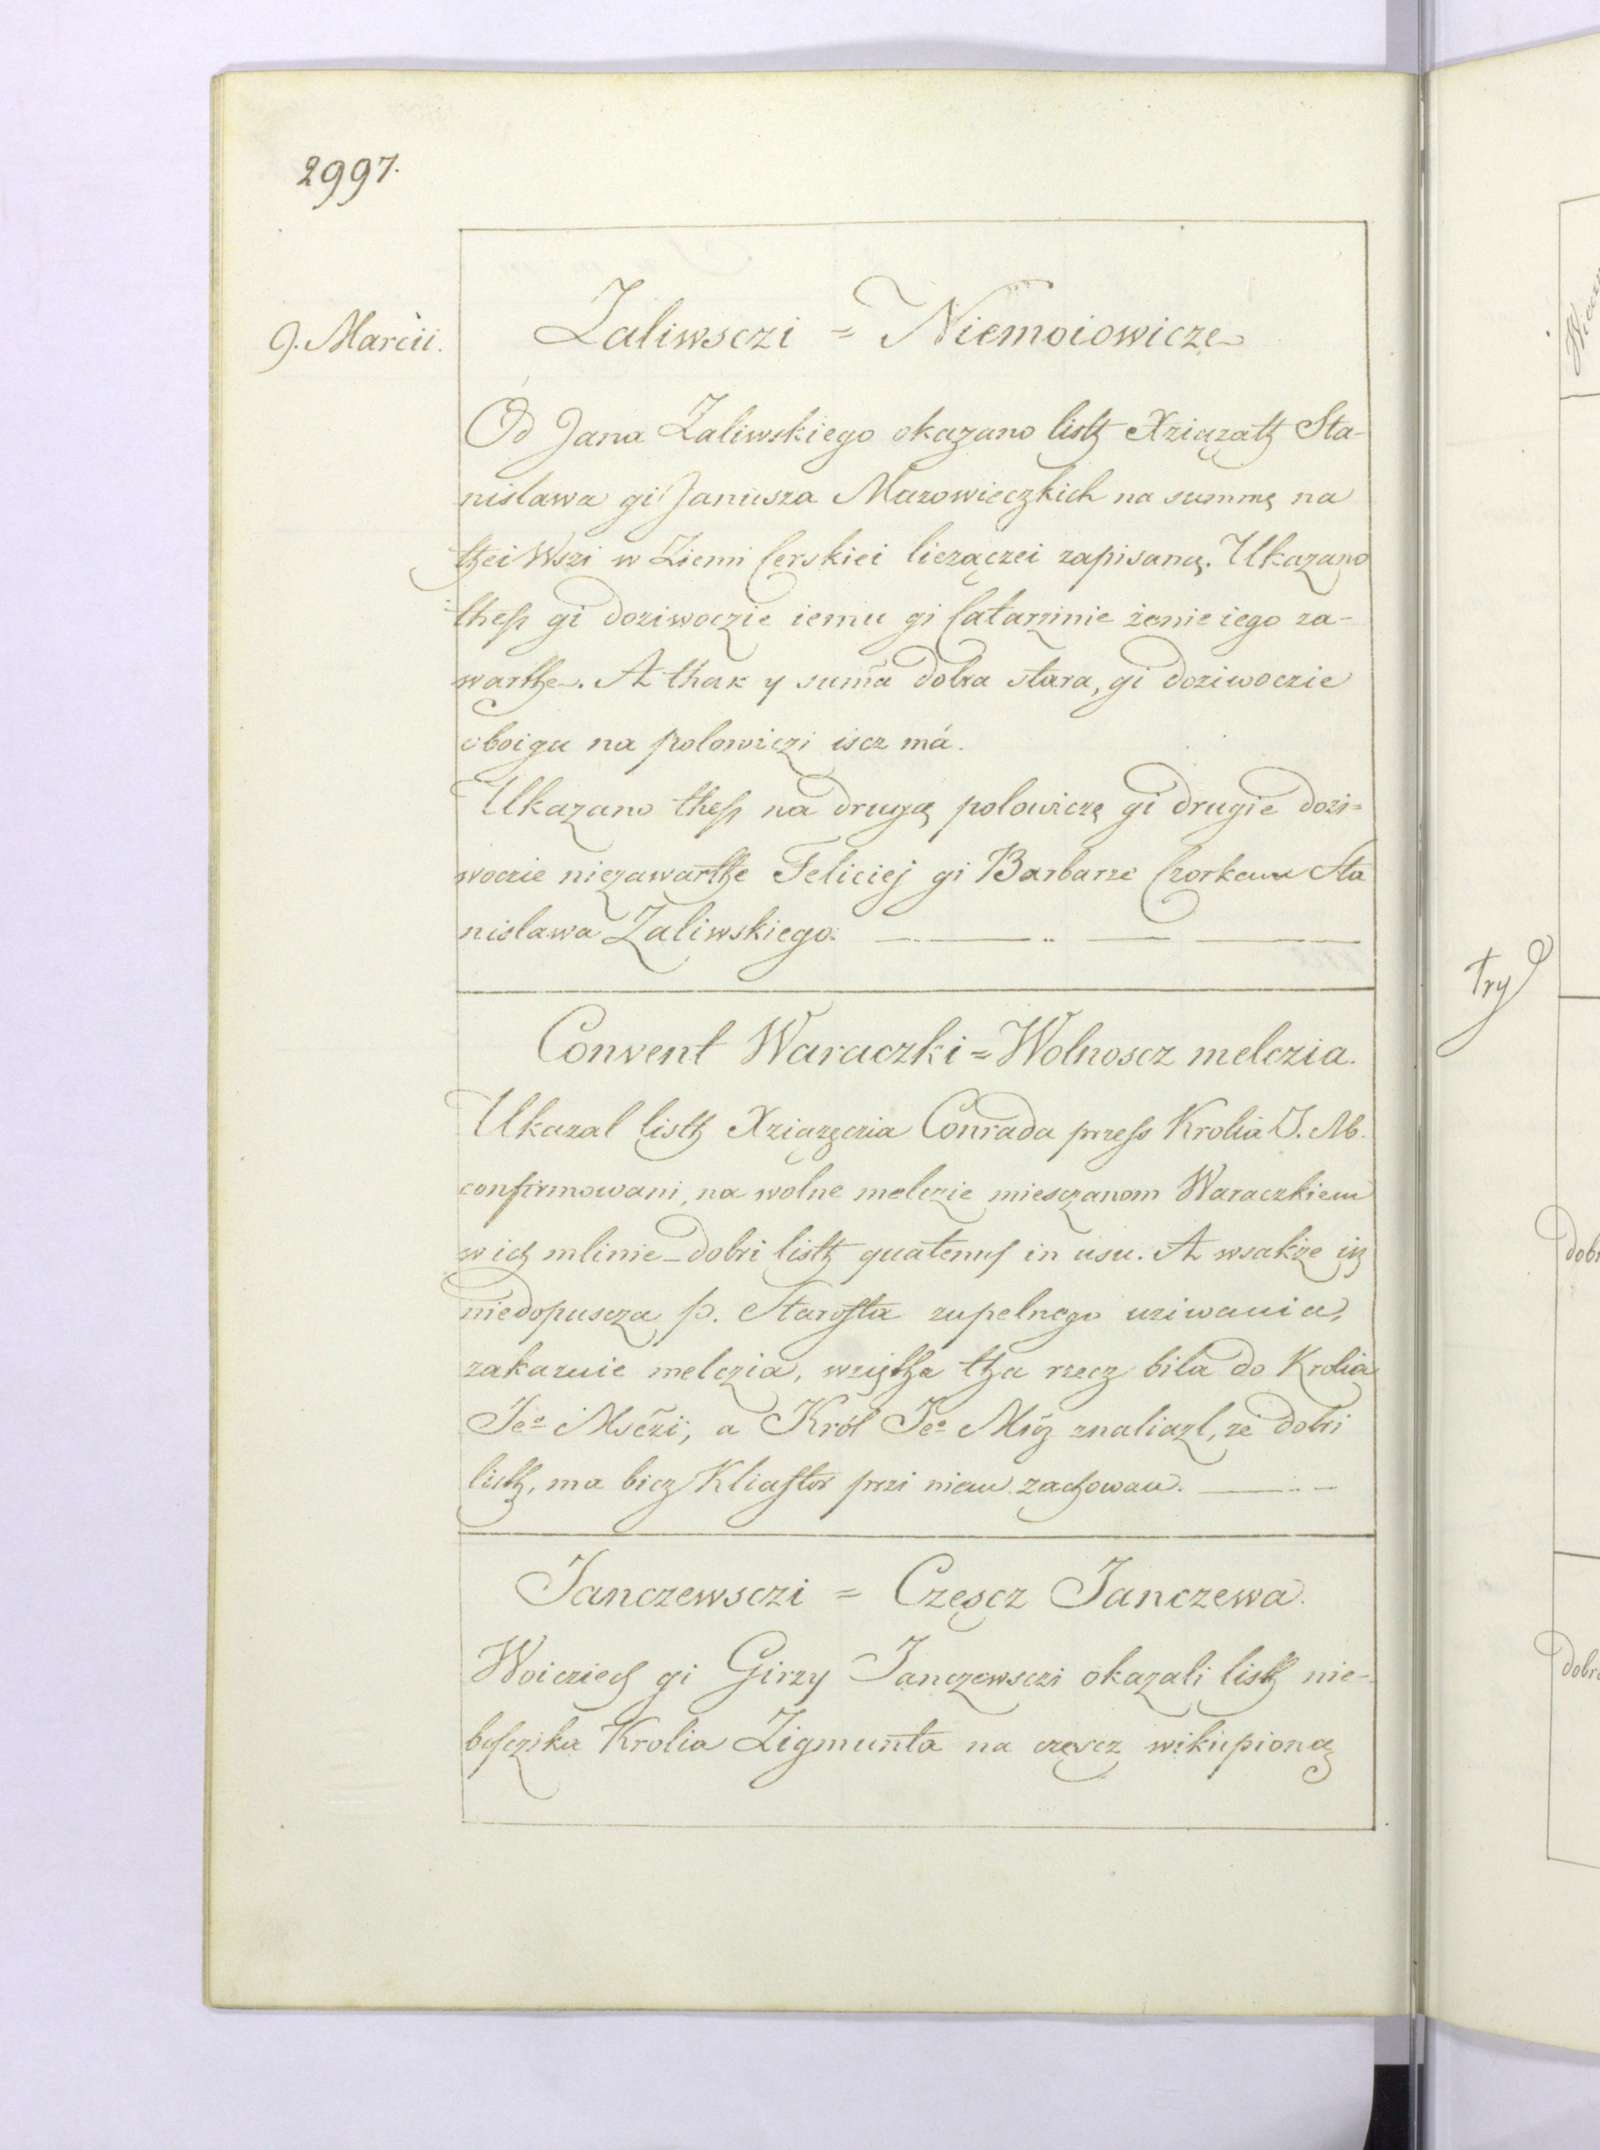 2997.
9. Marcii.
Zaliwsczi = Niemoiowicze
Od Jana Zaliwskiego okazano listh Xziązath Sta-
nislawa gi Janusza Mazowieczkich na summę na
thei Wszi w Ziemi Cerskiei liezączei zapisaną. Ukazano
thesz gi doziwoczie iemu gi Catarzinie żenie iego za-
warthe. A thak y sum̃a dobra stara, gi doziwoczie
oboigu na polowiczi iscz má.
Ukazano thesz na drugą polowiczę gi drugie dozi=
woczie niezawarthe Feliciej gi Barbarze Czorkam Sta
nislawa Zaliwskiego.
Convent Waraczki = Wolnoscz melczia.
Ukazal listh Xziązęczia Conrada przess Krolia J. M.
confirmowani, na wolne melczie miesczanom Waraczkiem
w ich mlinie - dobri listh quatenus in usu. A wsakże iz
niedopuscza p. Starosta zupelnego uziwania,
zakazuie melczia, wzięthe tha rzecz bila do Krolia
Jeo Mśczi, a Król Jeo Mśz znaliazl, ze dobri
listh, ma bicz Kliastor przi niem zachowan.
Janczewsczi = Częscz Janczewa.
Woicziech gi Girzy Janczewsczi okazali listh nie-
bosczika Krolia Zigmunta na częscz wikupioną
try
dobr
dobr